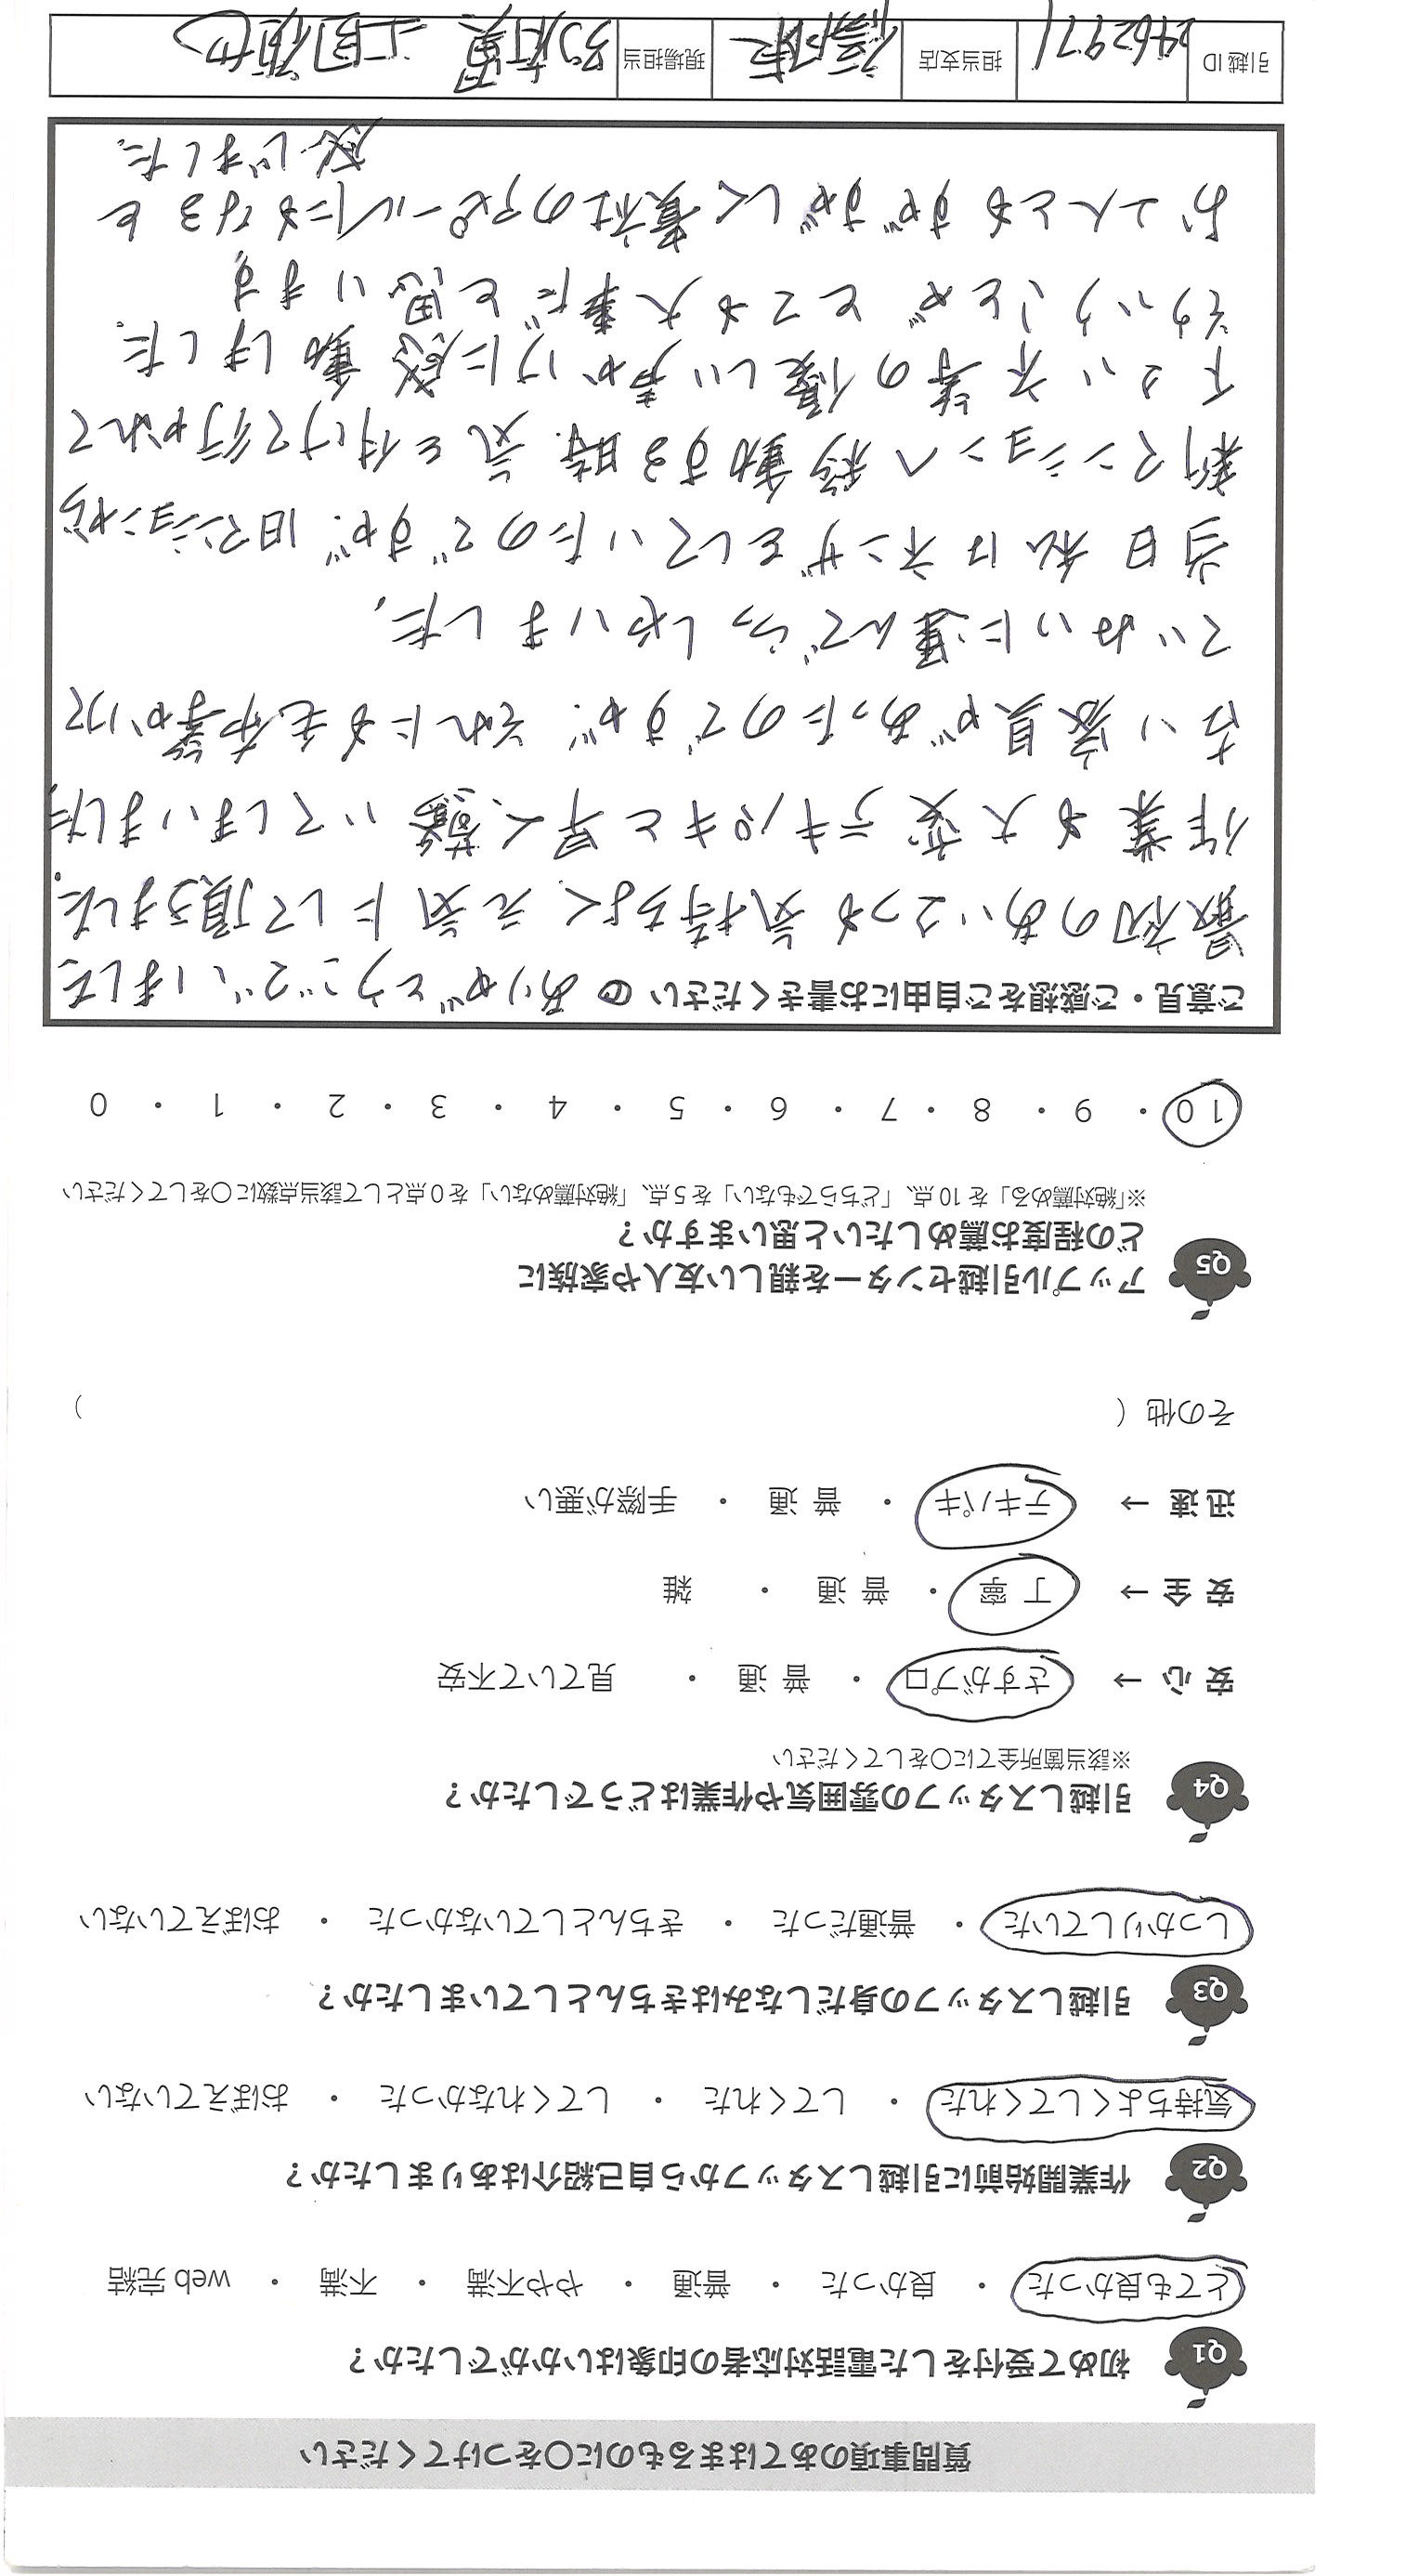 質問事項のあてはまるものに〇をつけてください
Q1 初めて受付をした電話対応者の印象はいかがでしたか？
とても良かった ・ 良かった ・ 普通 ・ やや不満 ・ 不満 ・ web 完結
Q2 作業開始前に引越しスタッフから自己紹介はありましたか？
気持ちよくしてくれた ・ してくれた ・ してくれなかった ・ おぼえていない
Q3 引越しスタッフの身だしなみはきちんとしていましたか？
しっかりしていた ・ 普通だった ・ きちんとしていなかった ・ おぼえていない
Q4 引越しスタッフの雰囲気や作業はどうでしたか？
※該当箇所全てに〇をしてください
安 心 → さすがプロ ・ 普 通 ・ 見ていて不安
安 全 → 丁 寧 ・ 普 通 ・ 雑
迅 速 → テキパキ ・ 普 通 ・ 手際が悪い
その他（ ）
Q5 アップル引越センターを親しい友人や家族に
どの程度お薦めしたいと思いますか？
※「絶対薦める」を 10 点、「どちらでもない」を 5 点、「絶対薦めない」を 0 点として該当点数に〇をしてください
10 ・ 9 ・ 8 ・ 7 ・ 6 ・ 5 ・ 4 ・ 3 ・ 2 ・ 1 ・ 0
ご意見・ご感想をご自由にお書きください ありがとうございました
最初のあいさつも気持ちよく、元気にして頂きました。
作業も大変テキパキと早く、驚いてしまいました
古い家具があったのですが、それにも毛布等かけて
ていねいに運んでらっしゃいました。
当日私はネンザをしていたのですが、旧マンションから
新マンションへ移動する時、気を付けて行かれて
下さい等の優しい声かけに感動しました。
そういうことがとても大事だと思います
お二人ともすがすがしく貴社のアピールにもなると
感じました。
引越 ID 2462971 担当支店 福岡東 現場担当